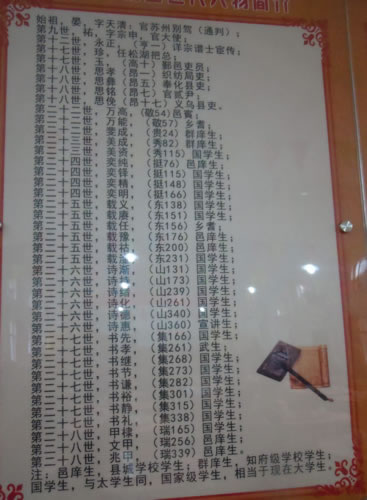 始祖，晏，字天清：官苏州别驾（通判）；
第九世，祐，字宗申，官大使；
第十二世，永正，（亨一）详宗谱士宦传；
第十七世，珍，任松湖把总；
第十七世，玉，（高十）鄞邑吏员；
第十八世，思孝（昂一）织纺局吏；
第十八世，思彝（昂五）奉化县吏；
第十八世，思铭（昂七）官贰尹；
第十八世，思俊（昂十七）义乌县吏；
第二十二世，万高，（敬54）邑賓；
第二十二世，万能，（敬57）乡耆；
第二十三世，斐成，（贵24）群庠生；
第二十三世，美成，（秀82）群庠生；
第二十三世，美资，（秀115）国学生；
第二十四世，奕纯，（挺76）邑庠生；
第二十四世，奕铎，（挺115）国学生；
第二十四世，奕精，（挺148）国学生；
第二十四世，奕明，（挺166）国学生；
第二十五世，载义，（东138）国学生；
第二十五世，载赓，（东151）国学生；
第二十五世，载任，（东156）乡耆；
第二十五世，载豫，（东176）邑庠生；
第二十五世，载祜，（东200）邑庠生；
第二十五世，载，（东231）国学生；
第二十六世，诗渐，（山131）国学生；
第二十六世，诗，（山173）国学生；
第二十六世，诗，（山239）国学生；
第二十六世，诗化，（山261）国学生；
第二十六世，诗德，（山340）国学生；
第二十六世，诗惠，（山360）宣讲生；
第二十七世，书先，（集166）国学生；
第二十七世，书孝，（集261）武生；
第二十七世，书继，（集268）国学生；
第二十七世，书节，（集273）国学生；
第二十七世，书谦，（集282）国学生；
第二十七世，书裕，（集301）国学生；
第二十七世，书静，（集315）国学生；
第二十七世，书礼，（集338）国学生；
第二十八世，甲棣，（瑞165）国学生；
第二十八世，文甲，（瑞256）邑庠生；
第二十八世，兆城，（瑞339）邑庠生；
注：邑庠生，县学校学生；群庠生，知府级学校学生；
国学生，与太学生同，国家级学生，相当于现在大学生。